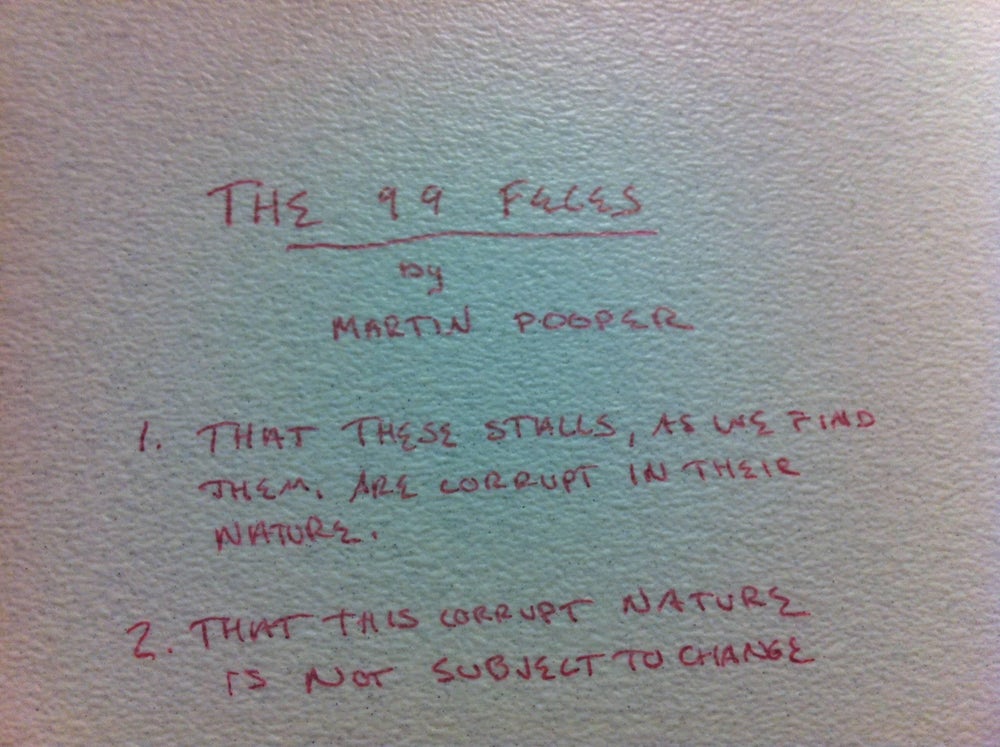 THE 99 FECES
by
MARTIN POOPER
1. THAT THESE STALLS, AS WE FIND
THEM. ARE CORRUPT IN THEIR
NATURE.
2. THAT THIS CORRUPT NATURE
IS NOT SUBJECT TO CHANGE